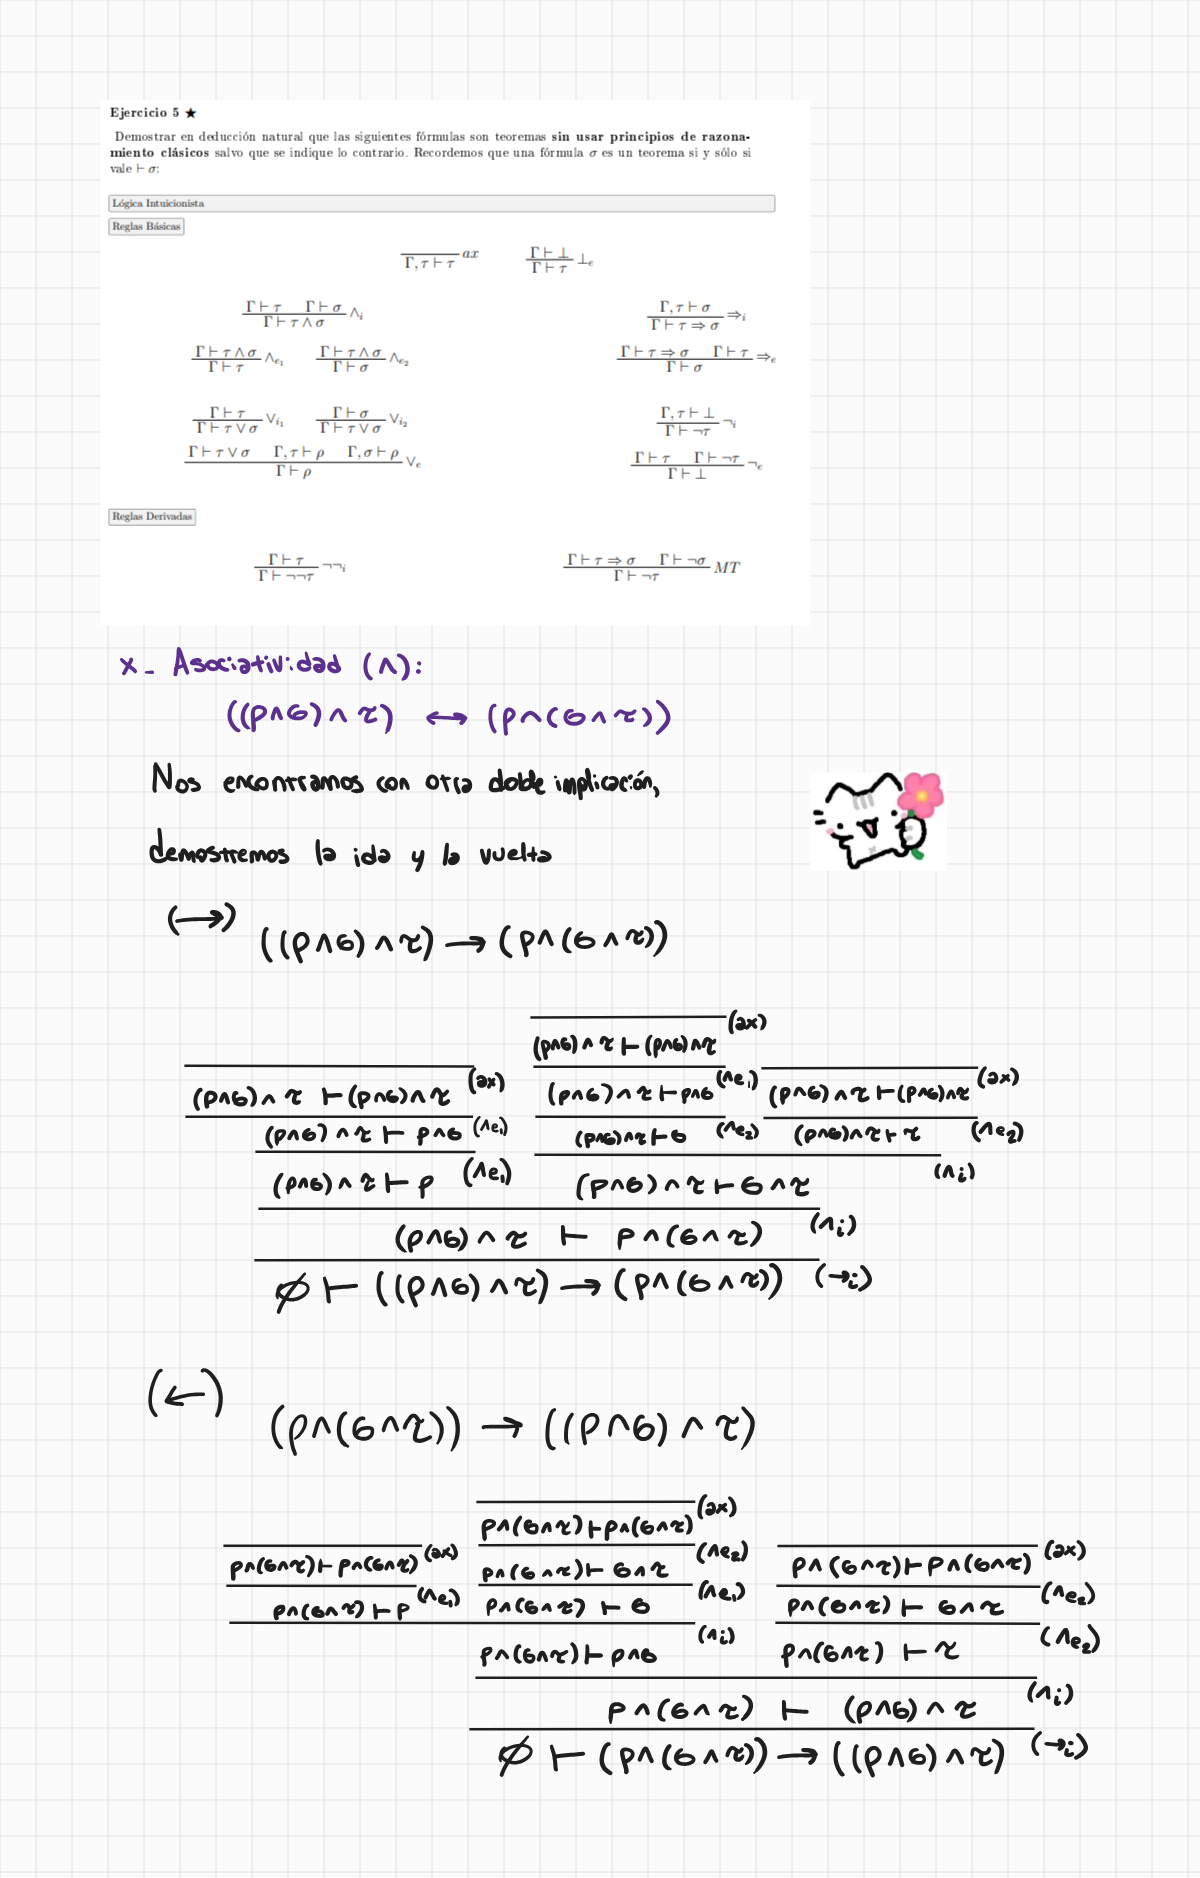 Ejercicio 5 ★
Demostrar en deducción natural que las siguientes fórmulas son teoremas sin usar principios de razona-
miento clásicos salvo que se indique lo contrario. Recordemos que una fórmula σ es un teorema si y sólo si
vale ⊢ σ:
Lógica Intuicionista
Reglas Básicas
Γ, τ ⊢ τ ax
Γ ⊢ ⊥
Γ ⊢ τ ⊥e
Γ ⊢ τ Γ ⊢ σ
Γ ⊢ τ ∧ σ ∧i
Γ, τ ⊢ σ
Γ ⊢ τ ⇒ σ ⇒i
Γ ⊢ τ ∧ σ
Γ ⊢ τ ∧e1
Γ ⊢ τ ∧ σ
Γ ⊢ σ ∧e2
Γ ⊢ τ ⇒ σ Γ ⊢ τ
Γ ⊢ σ ⇒e
Γ ⊢ τ
Γ ⊢ τ ∨ σ ∨i1
Γ ⊢ σ
Γ ⊢ τ ∨ σ ∨i2
Γ, τ ⊢ ⊥
Γ ⊢ ¬τ ¬i
Γ ⊢ τ ∨ σ Γ, τ ⊢ ρ Γ, σ ⊢ ρ
Γ ⊢ ρ ∨e
Γ ⊢ τ Γ ⊢ ¬τ
Γ ⊢ ⊥ ¬e
Reglas Derivadas
Γ ⊢ τ
Γ ⊢ ¬¬τ ¬¬i
Γ ⊢ τ ⇒ σ Γ ⊢ ¬σ
Γ ⊢ ¬τ MT
x- Asociatividad (∧):
((ρ∧σ)∧τ) ↔ (ρ∧(σ∧τ))
Nos encontramos con otra doble implicación,
demostremos la ida y la vuelta
(→)
((ρ∧σ)∧τ) → (ρ∧(σ∧τ))
(ax)
(ρ∧σ)∧τ ⊢ (ρ∧σ)∧τ
(ρ∧σ)∧τ ⊢ (ρ∧σ)∧τ (ax) (ρ∧σ)∧τ ⊢ ρ∧σ (∧e1) (ρ∧σ)∧τ ⊢ (ρ∧σ)∧τ (ax)
(ρ∧σ)∧τ ⊢ ρ∧σ (∧e1) (ρ∧σ)∧τ ⊢ σ (∧e2) (ρ∧σ)∧τ ⊢ τ (∧e2)
(ρ∧σ)∧τ ⊢ ρ (∧e1) (ρ∧σ)∧τ ⊢ σ∧τ (∧i)
(ρ∧σ)∧τ ⊢ ρ∧(σ∧τ) (∧i)
∅ ⊢ ((ρ∧σ)∧τ) → (ρ∧(σ∧τ)) (→i)
(←)
(ρ∧(σ∧τ)) → ((ρ∧σ)∧τ)
ρ∧(σ∧τ) ⊢ ρ∧(σ∧τ) (ax)
ρ∧(σ∧τ) ⊢ ρ∧(σ∧τ) (ax) ρ∧(σ∧τ) ⊢ σ∧τ (∧e2) ρ∧(σ∧τ) ⊢ ρ∧(σ∧τ) (ax)
ρ∧(σ∧τ) ⊢ ρ (∧e1) ρ∧(σ∧τ) ⊢ σ (∧e1) ρ∧(σ∧τ) ⊢ σ∧τ (∧e2)
ρ∧(σ∧τ) ⊢ ρ∧σ (∧i) ρ∧(σ∧τ) ⊢ τ (∧e2)
ρ∧(σ∧τ) ⊢ (ρ∧σ)∧τ (∧i)
∅ ⊢ (ρ∧(σ∧τ)) → ((ρ∧σ)∧τ) (→i)